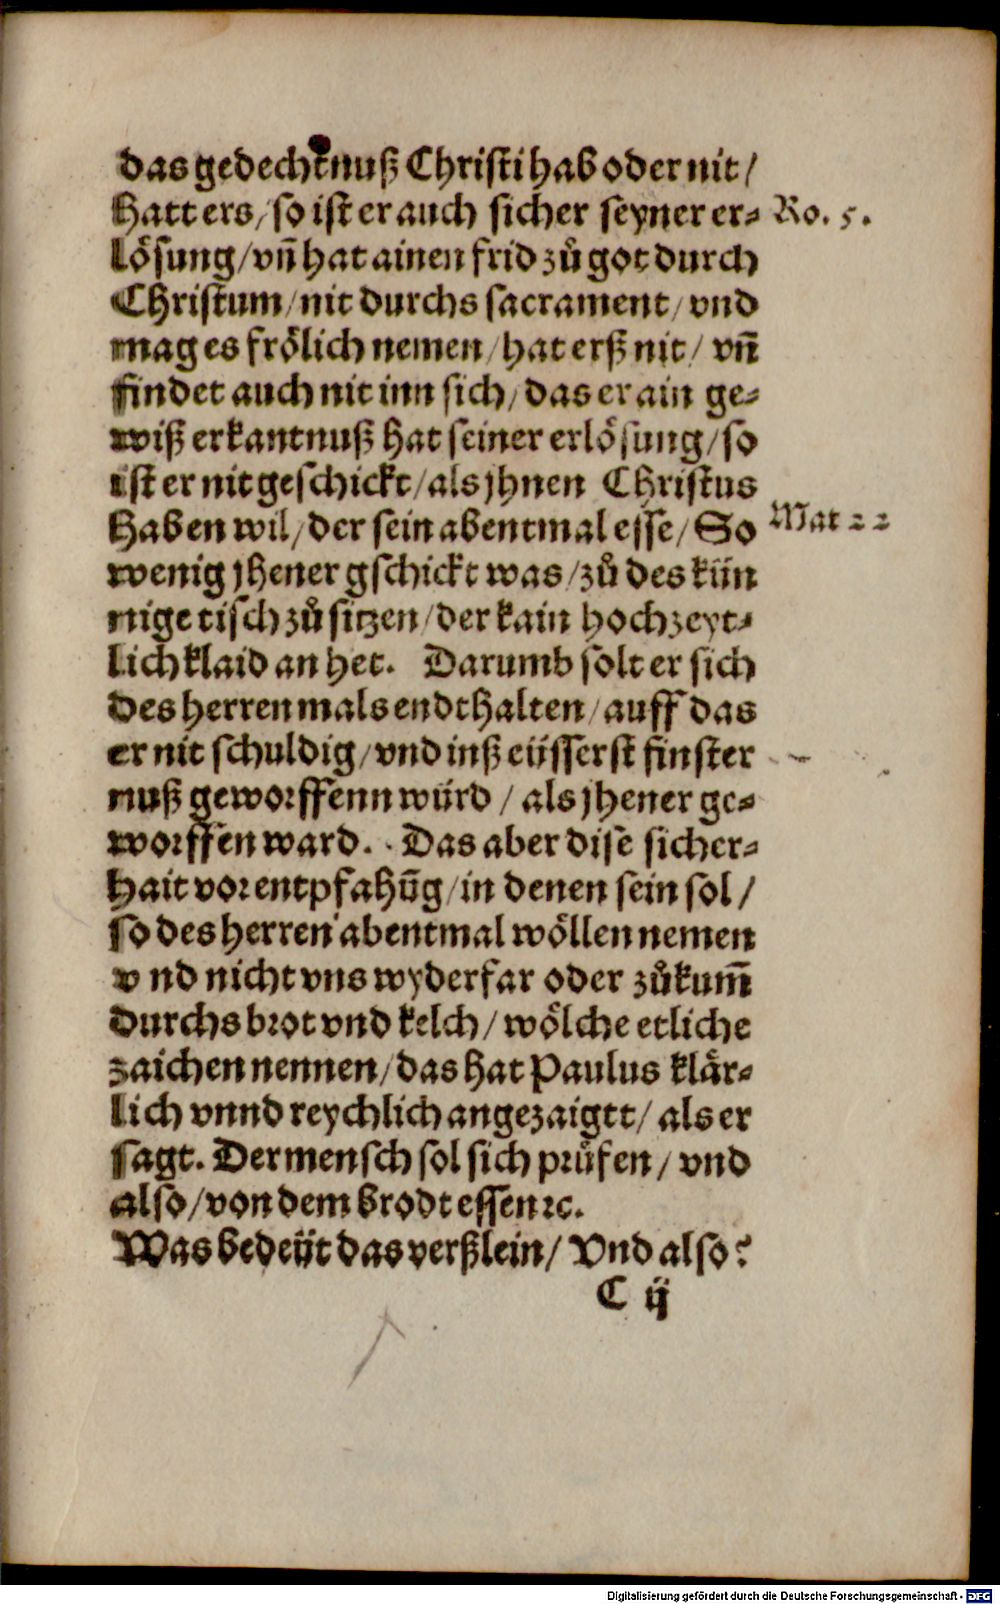 das gedechtnuß Christi hab oder nit /
Hatt ers / so ist er auch sicher seyner er⸗ Ro. 5.
lösung / vñ hat ainen frid zů got durch
Christum / nit durchs sacrament / vnd
mag es frölich nemen / hat erß nit / vñ
findet auch nit inn sich / das er ain ge⸗
wiß erkantnuß hat seiner erlösung / so
ist er nit geschickt / als jhnen Christus
haben wil / der sein abentmal esse / So Mat 22
wenig jhener gschickt was / zů des kün
nige tisch zů sitzen / der kain hochzeyt⸗
lich klaid an het. Darumb solt er sich
des herren mals endthalten / auff das
er nit schuldig / vnd inß eüsserst finster
nuß geworffenn würd / als jhener ge⸗
worffen ward. Das aber dise sicher⸗
hait vor entpfahūg / in denen sein sol /
so des herren abentmal wöllen nemen
vnd nicht vns wyderfar oder zůkum̄
durchs brot vnd kelch / wölche etliche
zaichen nennen / das hat Paulus klär⸗
lich vnnd reychlich angezaigtt / als er
sagt. Der mensch sol sich prüfen / vnd
also / von dem brodt essen ꝛc.
Was bedeüt das verßlein / Vnd also?
C ij
Digitalisierung gefördert durch die Deutsche Forschungsgemeinschaft - DFG